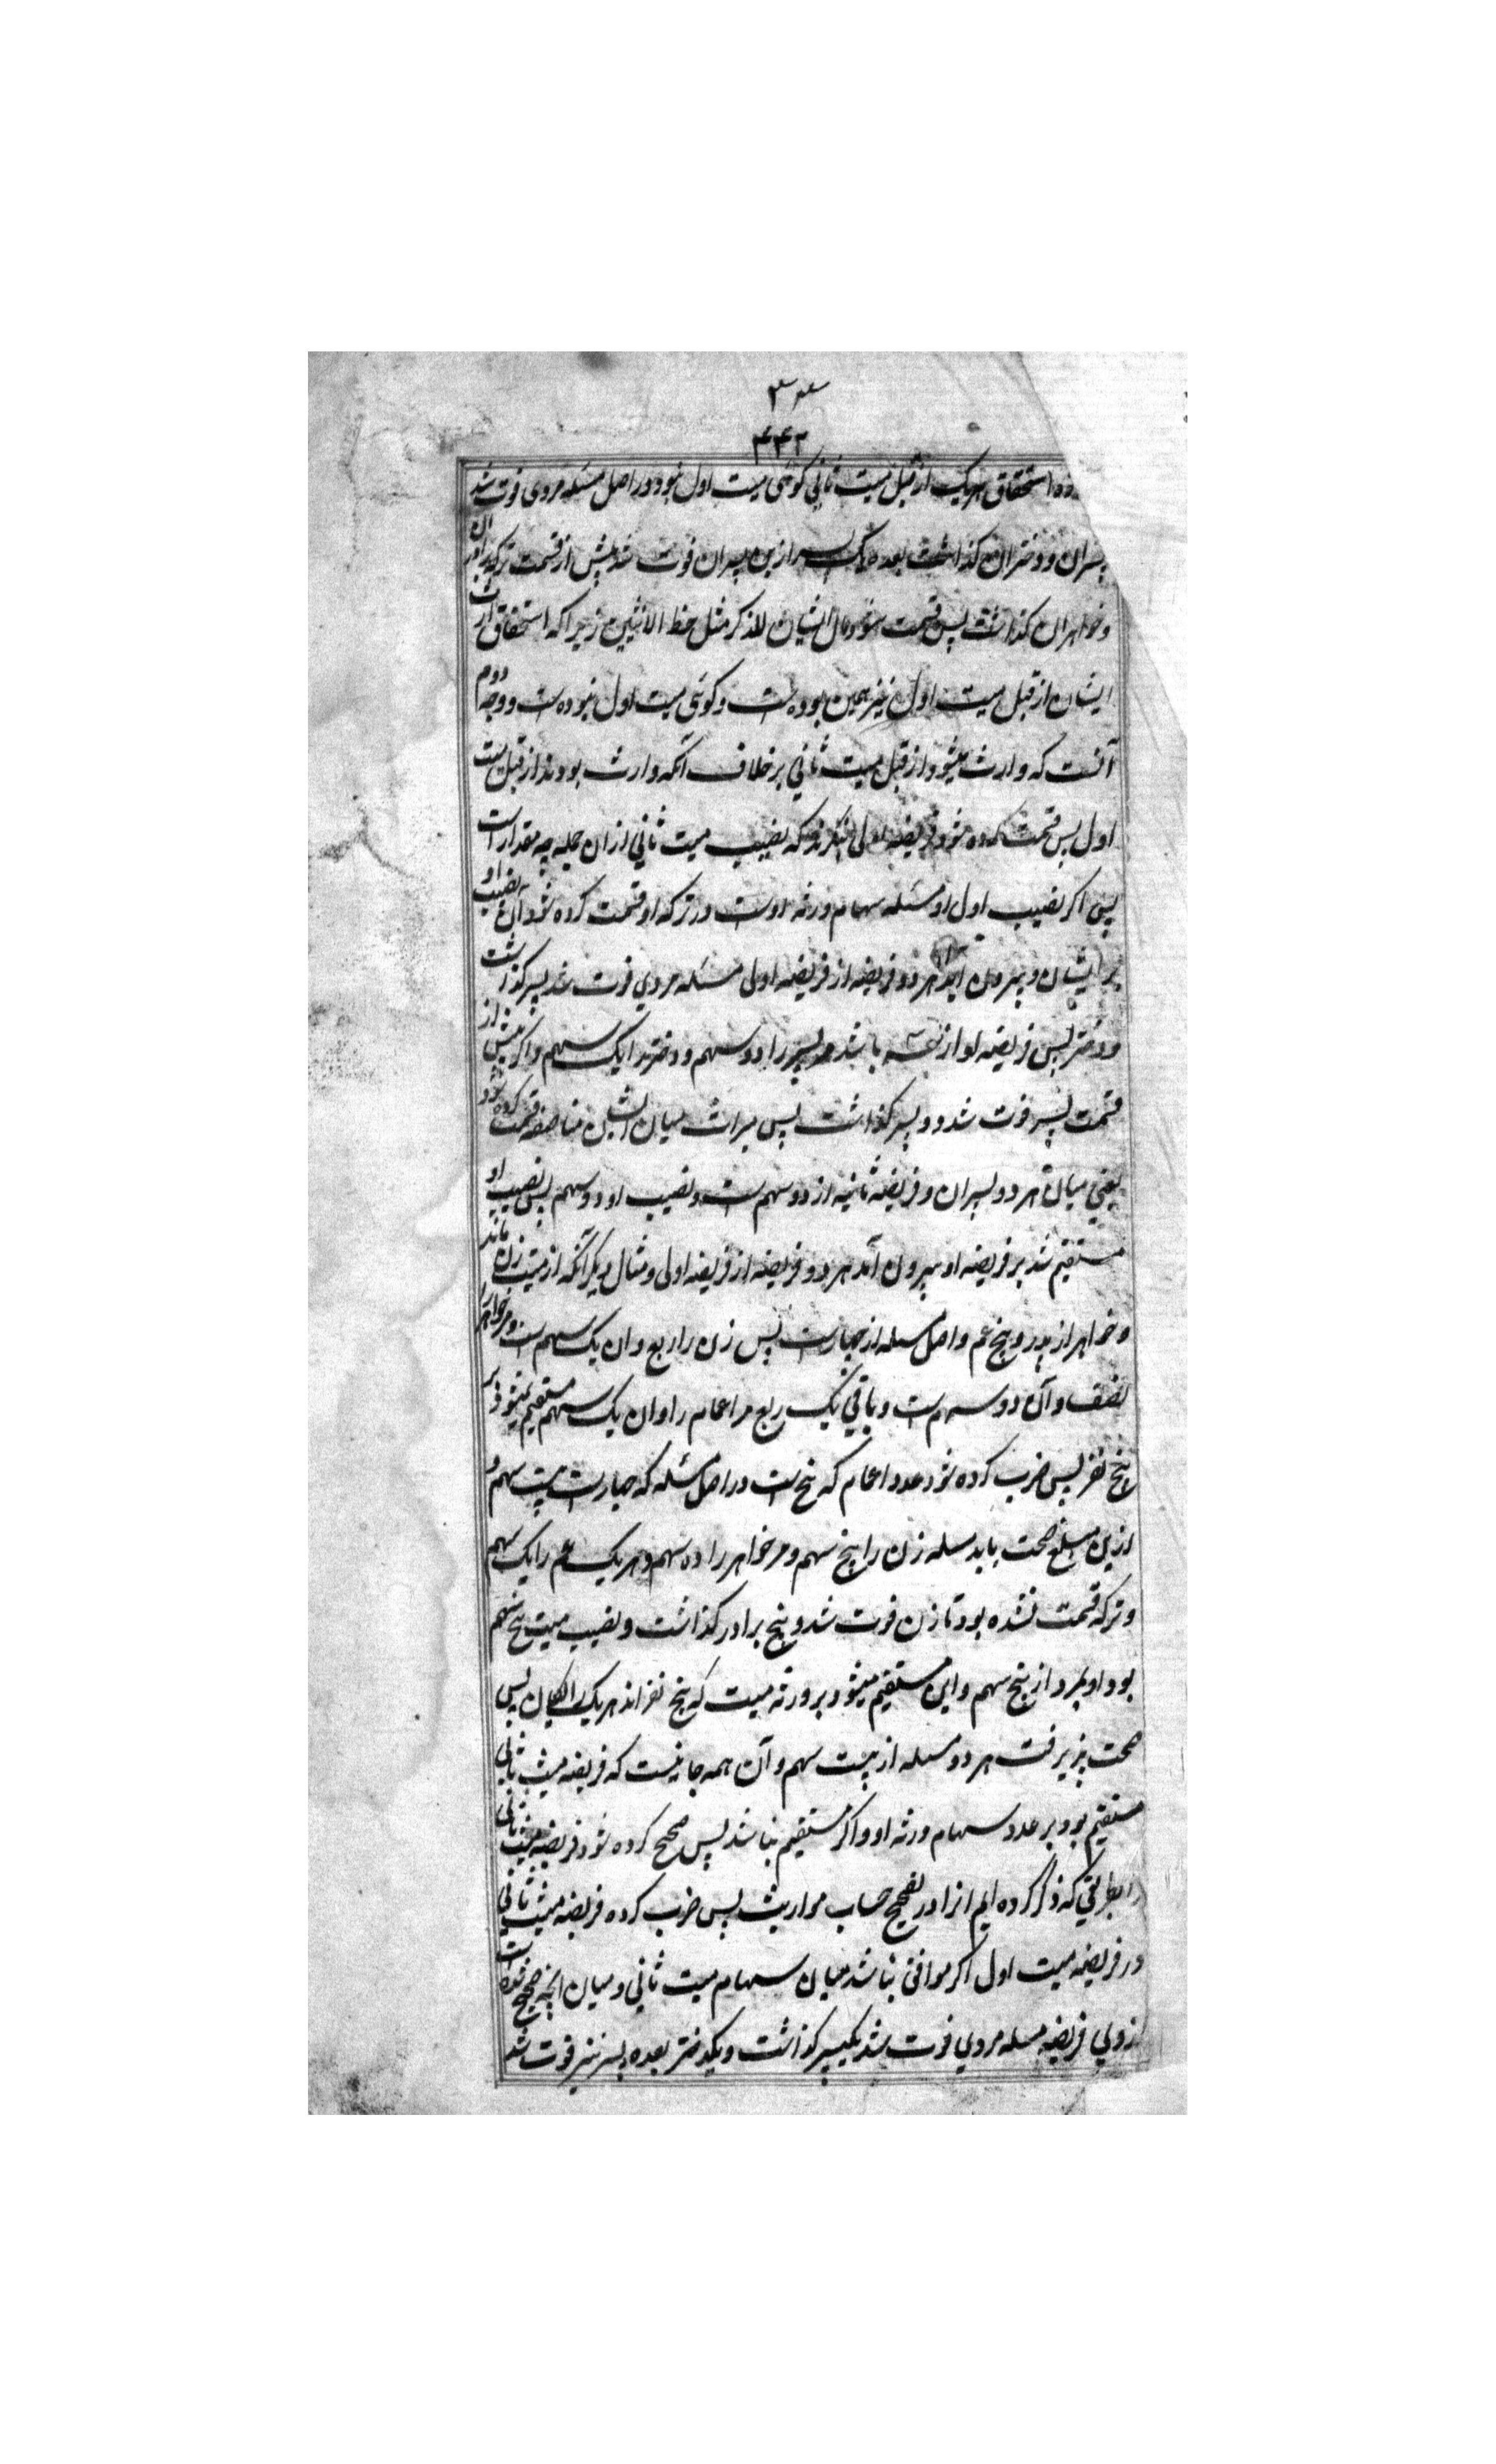 ۴۴۲
استحقاق هریک از قبل میت ثانی کوئی میت اول نبود در اصل مسئله مردی فوت شد
پسران و دختران کذاشت بعده یک پسر ازین پسران فوت شد پیش از قسمت ترکه برادران
و خواهران کذاشت پس قسمت شود مال ایشان للذکر مثل حظ الانثیین زیراکه استحقاق ارث
ایشان از قبل میت اول نیز همین بوده است و کوئی میت اول نبوده است و وجه دوم
آنست که وارث میشود از قبل میت ثانی بر خلاف آنکه وارث بودند از قبل میت
اول پس قسمت کرده شود فریضه اولی بنکرند که نصیب میت ثانی ازان جمله چه مقدار است
پس اکر نصیب اول او مسئله سهام ورثه اوست در ترکه او قسمت کرده شود آن نصیب او
بر ایشان و بیرون آید هر دو فریضه از فریضه اولی مسئله مردی فوت شد پسر کذاشت
و دختر پس فریضه او از سه باشد پسر را دو سهم و دختر را یک سهم و اکر پیش از
قسمت پسر فوت شد دو پسر کذاشت پس میراث میان ایشان مناصفه قسمت کرده شود
یعنی میان هر دو پسران و فریضه ثانیه از دو سهم است و نصیب او دو سهم پس نصیب او
مستقیم شد بر فریضه او بیرون آمد هر دو فریضه از فریضه اولی و مثال دیکر آنکه از میت زن ماند
و خواهر از پدر و پنج عم و اصل مسله از چهارست پس زن را ربع و ان یک سهم است و مر خواهر را
نصف و آن دو سهم است و باقی یک ربع مر اعمام را و ان یک سهم مستقیم نمیشود بر
پنج نفر پس ضرب کرده شود عدد اعمام که پنج است در اصل مسئله که چهارست بیست سهم و
ازین مبلغ صحت یابد مسله زن را پنج سهم و مر خواهر را ده سهم و هر یک عم را یک سهم
و ترکه قسمت نشده بود تا زن فوت شد و پنج برادر کذاشت و نصیب میت پنج سهم
بود او بمرد از پنج سهم و این مستقیم میشود بر ورثه میت که پنج نفر اند هر یک را یکان پس
صحت پذیرفت هر دو مسله از بیست سهم و آن همه جائیست که فریضه میت ثانی
مستقیم بود بر عدد سهام ورثه او و اکر مستقیم نباشد پس صحیح کرده شود فریضه میت ثانی
را بطریقی که ذکر کرده ایم انرا در تصحیح حساب مواریث پس ضرب کرده فریضه میت ثانی
در فریضه میت اول اکر موافق نباشد میان سهام میت ثانی و میان انچه صحیح شده است
ازوی فریضه مسله مردی فوت شد یکپسر کذاشت و یکدختر بعده پسر نیز فوت شد